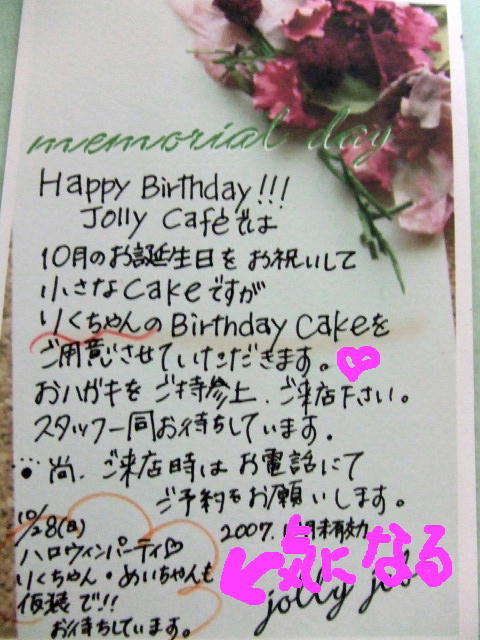 memorial day
Happy Birthday!!!
Jolly Caféでは
10月のお誕生日をお祝いして
小さなcakeですが
りくちゃんのBirthday Cakeを
ご用意させていただきます。
おハガキをご持参上、ご来店下さい。
スタッフ一同お待ちしています。
尚、ご来店時はお電話にて
ご予約をお願いします。
10/28(日)
ハロウィンパーティ♡
りくちゃん・めいちゃんも
仮装で!!
お待ちしています。
2007.
月末有効
気になる
jolly